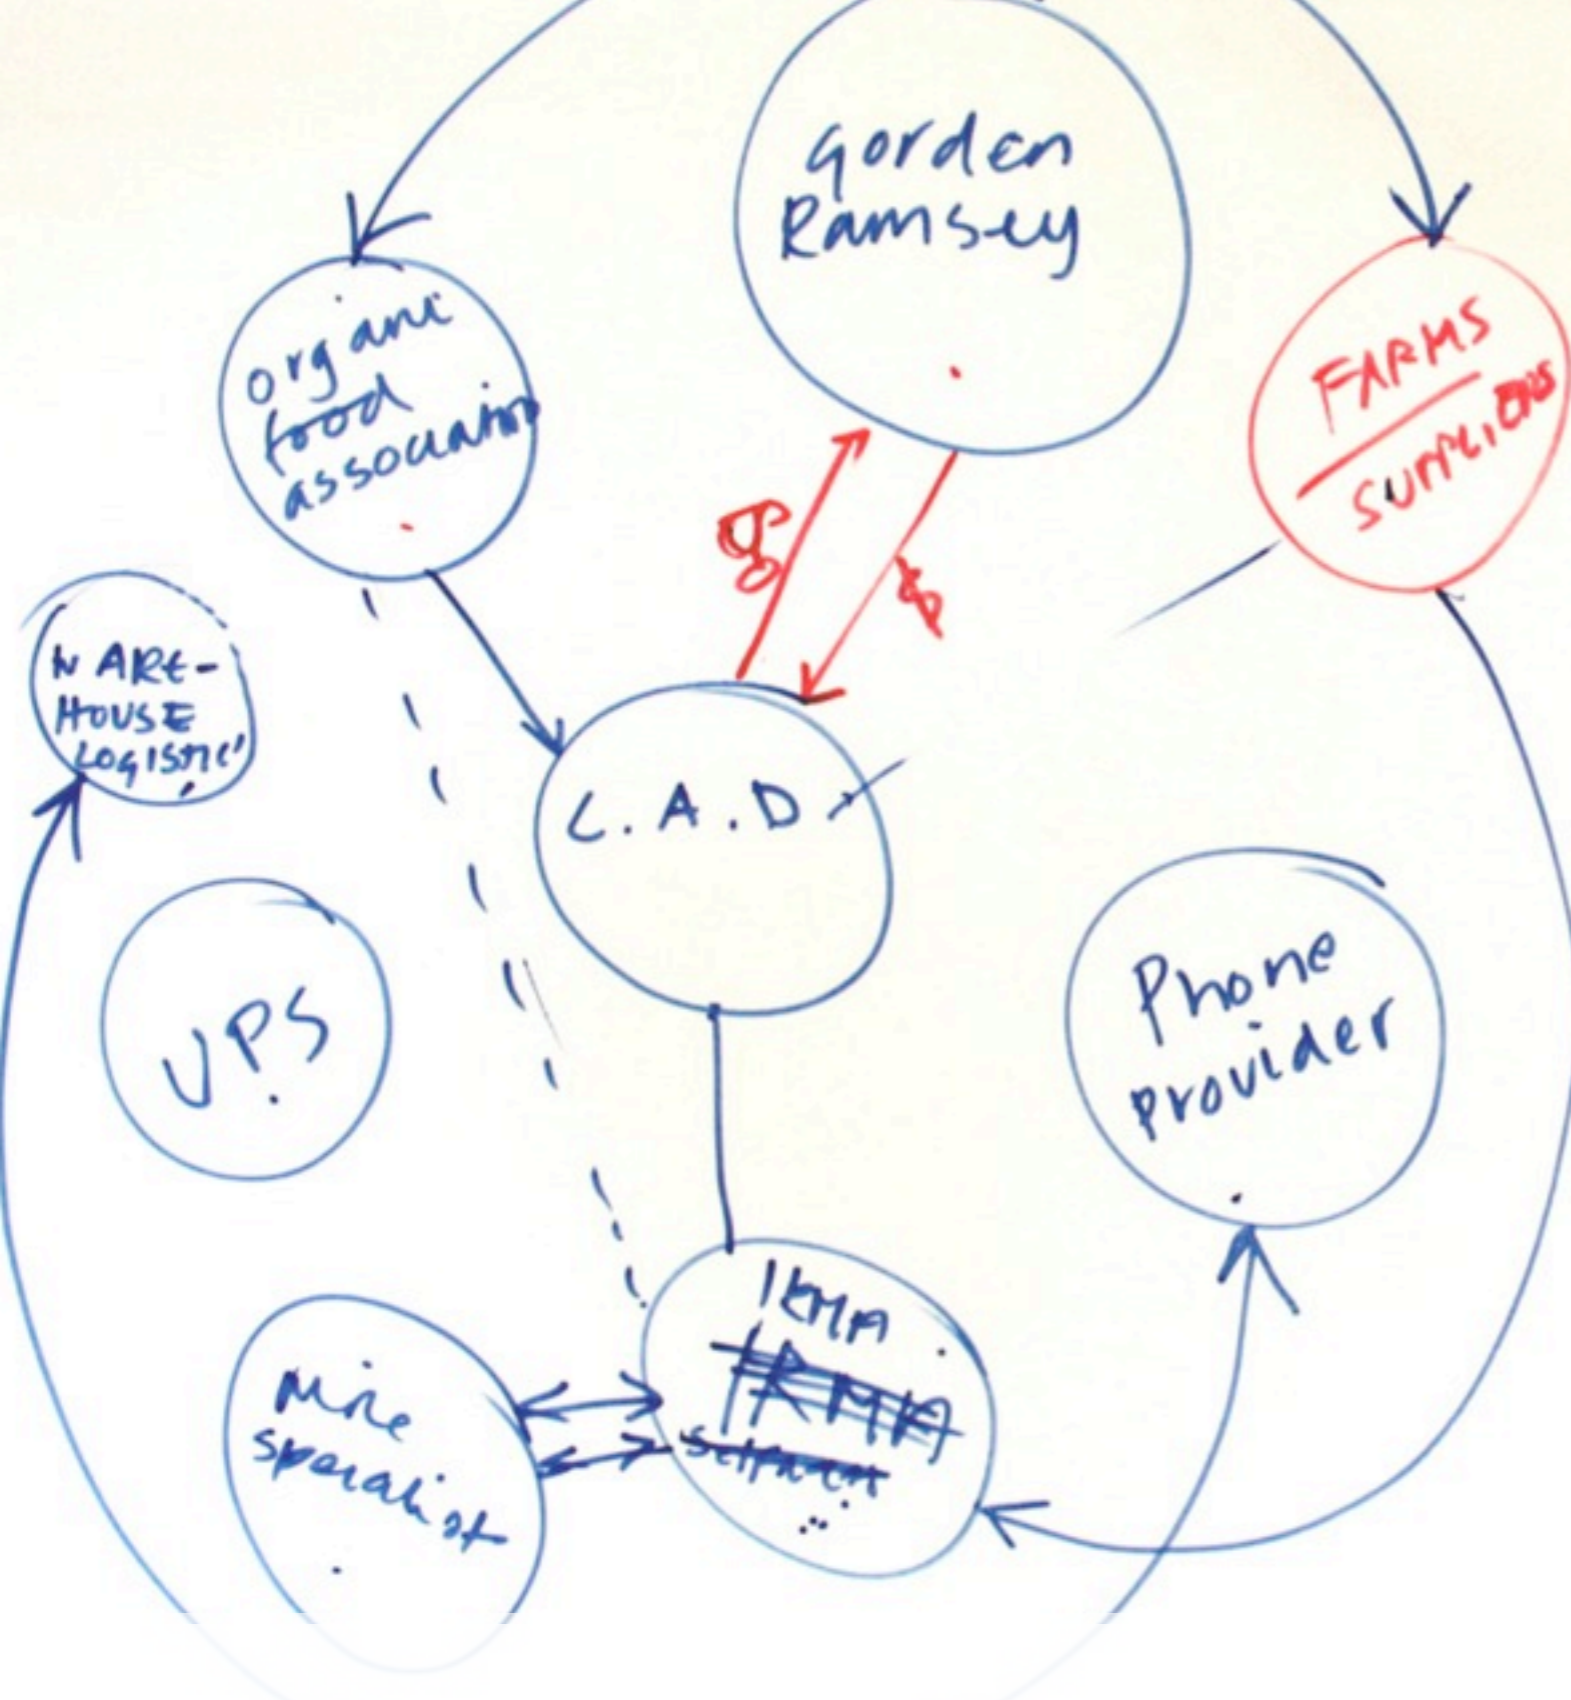 Gorden
Ramsey
organic
food
association
FARMS
SUPPLIERS
$
WARE-
HOUSE
LOGISTIC
C.A.D.
UPS
Phone
provider
IKMA
IRMA
specialist